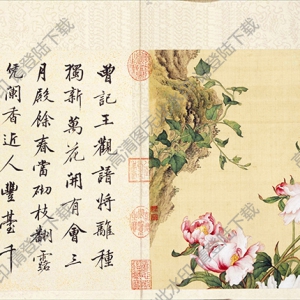 曾記王觀譜將離種
獨新萬花開有會三
月殿餘春當砌枝翻露
凭闌香近人豐臺千
登陆下载